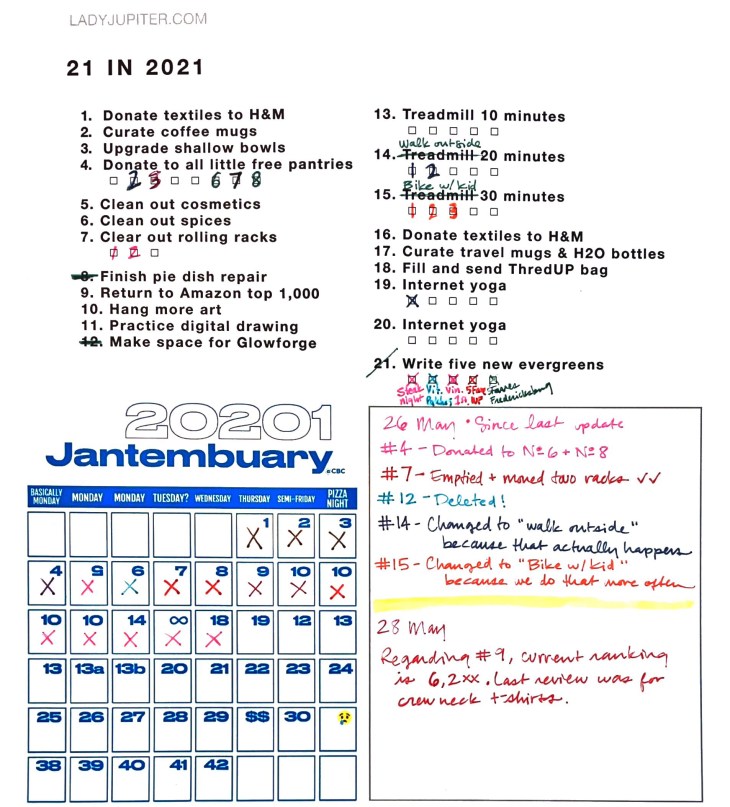 LADYJUPITER.COM
21 IN 2021
1. Donate textiles to H&M
2. Curate coffee mugs
3. Upgrade shallow bowls
4. Donate to all little free pantries
2 3 6 7 8
5. Clean out cosmetics
6. Clean out spices
7. Clear out rolling racks
1 2
8. Finish pie dish repair
9. Return to Amazon top 1,000
10. Hang more art
11. Practice digital drawing
12. Make space for Glowforge
13. Treadmill 10 minutes
walk outside
14. Treadmill 20 minutes
1 2
Bike w/kid
15. Treadmill 30 minutes
1 2 3
16. Donate textiles to H&M
17. Curate travel mugs & H2O bottles
18. Fill and send ThredUP bag
19. Internet yoga
20. Internet yoga
21. Write five new evergreens
Night Fredericksburg
20201
Jantembuary
©CBC
BASICALLY MONDAY MONDAY MONDAY TUESDAY? WEDNESDAY THURSDAY SEMI-FRIDAY PIZZA NIGHT
1 2 3
4 5 6 7 8 9 10 10
10 10 14 ∞ 18 19 12 13
13 13a 13b 20 21 22 23 24
25 26 27 28 29 $$ 30
38 39 40 41 42
26 May • Since last update
#4 - Donated to Nº 6 + Nº 8
#7 - Emptied + moved two racks ✓✓
#12 - Deleted!
#14 - Changed to "walk outside"
because that actually happens
#15 - Changed to "Bike w/kid"
because we do that more often
28 May
Regarding #9, current ranking
is 6,2xx. Last review was for
crew neck t-shirts.